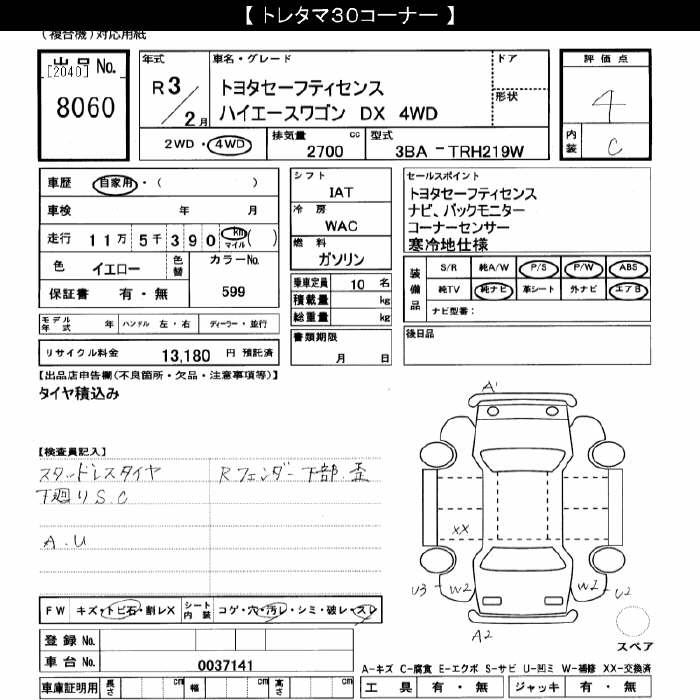 【 トレタマ30コーナー 】
(複合機)対応用紙
出品 No.
[2040]
8060
年式
R 3 / 2 月
車名・グレード
トヨタセーフティセンス
ハイエースワゴン DX 4WD
ドア
形状
評価点
4
内装 C
2WD・4WD
排気量 cc
2700
型式
3BA - TRH219W
車歴 自家用・( )
車検 年 月
走行 11万 5千 390 km マイル ( )
色 イエロー 色替 カラーNo.
保証書 有・無 599
シフト
IAT
冷房
WAC
燃料
ガソリン
セールスポイント
トヨタセーフティセンス
ナビ、バックモニター
コーナーセンサー
寒冷地仕様
乗車定員 10 名
積載量 kg
総重量 kg
装備品 S/R 純A/W P/S P/W ABS
純TV 純ナビ 革シート 外ナビ エアB
ナビ型番:
モデル年式 年 ハンドル 左・右 ディーラー・並行
書類期限
月 日
後日品
リサイクル料金 13,180 円 預託済
【出品店申告欄(不良箇所・欠品・注意事項等)】
タイヤ積込み
【検査員記入】
スタッドレスタイヤ Rフェンダー下部.歪
下廻り S.C
A.U
A'
XX
U3 W2 W2 U2
A2
FW キズ・トビ石・割レX シート内装 コゲ・穴・汚レ・シミ・破レ・スレ
スペア
登録 No.
車台 No. 0037141
A-キズ C-腐食 E-エクボ S-サビ U-凹ミ W-補修 XX-交換済
車庫証明用 長さ cm 幅 cm 高さ cm 工具 有・無 ジャッキ 有・無